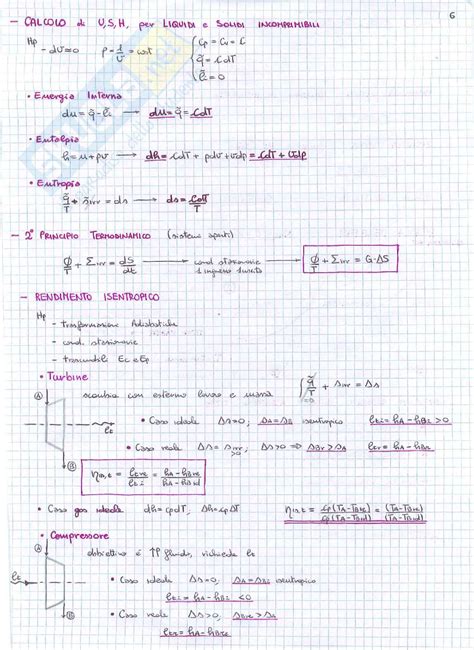 6
- CALCOLO di U,S,H, per LIQUIDI e SOLIDI INCOMPRIMIBILI
Hp
- dv=0 ρ=1/v=cost { cp=cv=c
q̃=cdT
l̃i=0
• Energia Interna
du=q̃-l̃i → du=q̃=cdT
• Entalpia
h=u+pv → dh=cdT+pdv+vdp=cdT+vdp
• Entropia
q̃/T+s̃irr=ds → ds=cdT/T
- 2° PRINCIPIO TERMODINAMICO (sistemi aperti)
Φ/T+Σirr=dS/dt → cond. stazionarie → Φ/T+Σirr=G·ΔS
1 ingresso 1 uscita
- RENDIMENTO ISENTROPICO
Hp
- Trasformazioni Adiabatiche
- cond. stazionarie
- trascurabili Ec e Ep
• Turbine
scambia con esterno lavoro e massa ∫q̃/T+Δsirr=Δs
=0
A
lt
B
• Caso ideale Δs=0, sA=sBi isentropico lti=hA-hBi>0
• Caso reale Δs=Δsirr, Δs>0 ⇒ sBr>sA ltr=hA-hBr
>0
ηis,t=ltre/lti=hA-hBre/hA-hBid
• Caso gas ideale dh=cpdT, Δh=cpΔT ηis,t=cp(TA-TBre)/cp(TA-TBid)=(TA-TBre)/(TA-TBid)
• Compressore
obbiettivo è ↑P fluido, richiede lt
A
lt
B
• Caso ideale Δs=0, sA=sBi isentropico
lti=hA-hBi<0
• Caso reale Δs>0, sBre>sA
ltre=hA-hBre